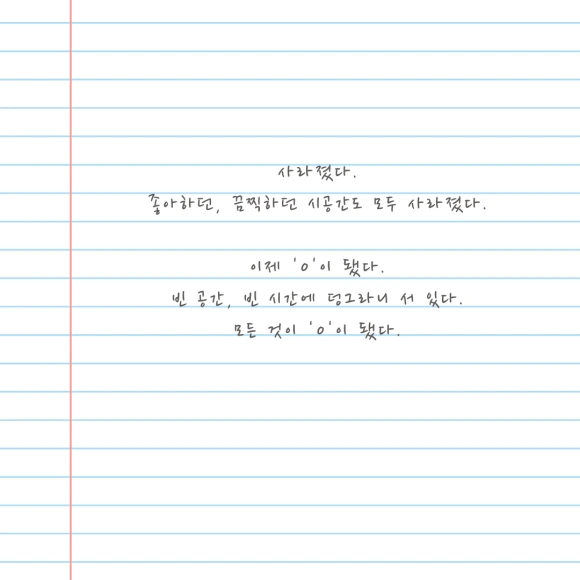 사라졌다.
좋아하던, 끔찍하던 시공간도 모두 사라졌다.
이제 'o'이 됐다.
빈 공간, 빈 시간에 덩그라니 서 있다.
모든 것이 'o'이 됐다.